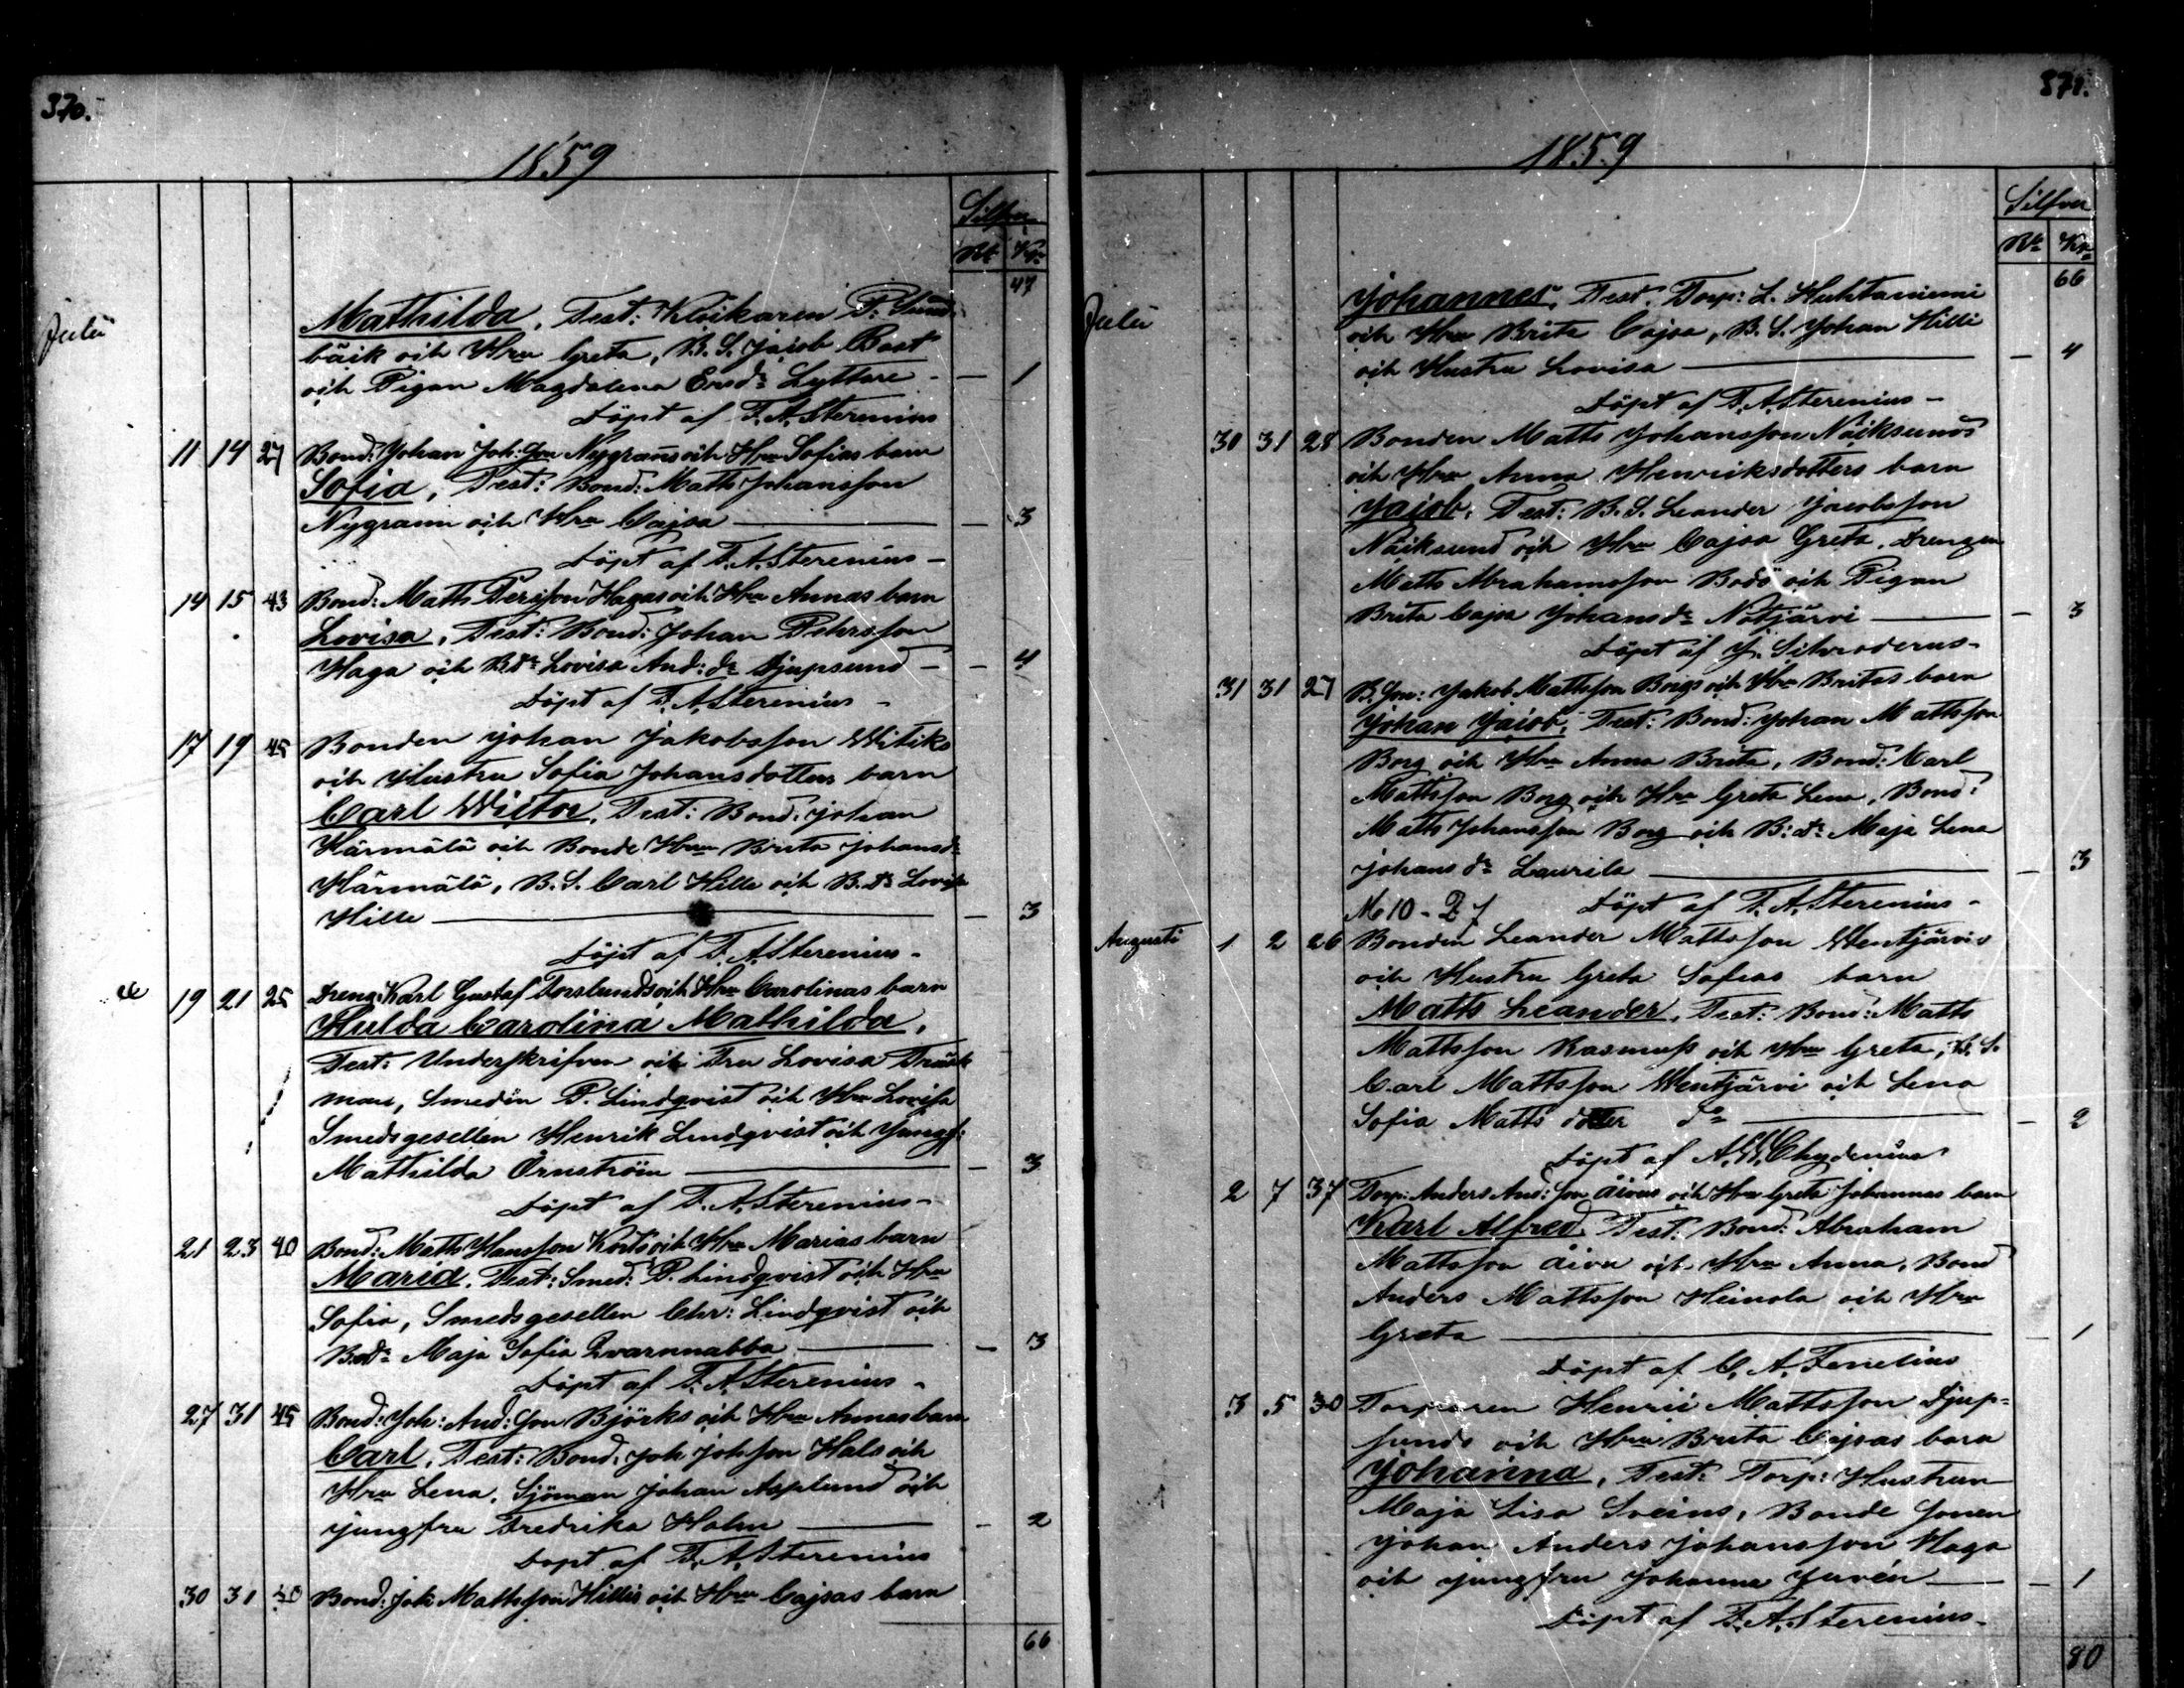 370.
1859
Silfver
Rb. Kp.
47
Julii
Mathilda, Test: Klåikaren P. Sund
bäck och Hru Greta, B. S. Jacob Bast
och Pigan Magdalena Ersd: Lyttare — 1
Döpt af F. A. Sterenius
11 14 27 Bond: Johan Joh:Son Nygrans och Hru Sofias barn
Sofia, Test: Bond: Matts Johansson
Nygrann och Hru Cajsa — 3
Döpt af F. A. Sterenius —
14 15 43 Bond: Matts Persson Hagas och Hru Annas barn
Lovisa, Test: Bond: Johan Pehrsson
Haga och B.dr Lovisa And: dr Djupsund — 4
Döpt af F. A. Sterenius —
17 19 45 Bonden Johan Jakobsson Witiks
och Hustru Sofia Johansdotters barn
Carl Wictor, Test: Bond: Johan
Härmälä och Bonde Hru Brita Johansdr
Härmälä, B. S. Carl Hille och B. dr Lovisa
Hille — 3
Döpt af F. A. Sterenius —
19 21 25 Dreng: Karl Gustaf Forslunds och Hru Carolinas barn
Hulda Carolina Mathilda,
Test: Underskrifven och Fru Lovisa Träsk
man, Smeden P. Lindqvist och Hru Lovisa
Smedsgesellen Henrik Lindqvist och Jungf:
Mathilda Örnström — 3
Döpt af F. A. Sterenius —
21 23 40 Bond: Matts Hansson Korts och Hru Marias barn
Maria, Test: Smed: P. Lindqvist och Hru
Sofia, Smedsgesellen Chr: Lindqvist och
B.dr Maja Sofia Qvarnnabba — 3
Döpt af F. A. Sterenius —
27 31 45 Bond: Joh: And: Son Björks och Hru Annas barn
Carl, Test: Bond. Joh Johsson Hals och
Hru Lena, Sjöman Johan Asplund och
jungfru Fredrika Holm — 2
Döpt af F. A. Sterenius
30 31 40 Bond: Joh Mattsson Hillis och Hru Cajsas barn
66
371.
1859
Silfver
Rb. Kp.
66
Julii
Johannes, Test. Torp: L. Huhtaniemi
och Hru Brita Cajsa, B. S. Johan Hilli
och Hustru Lovisa — 4
Döpt af F. A. Sterenius —
30 31 28 Bonden Matts Johansson Näiksunds
och Hru Anna Henriksdotters barn
Jacob, Test: B. S. Leander Jacobsson
Näiksund och Hru Cajsa Greta, Drengen
Matts Abrahamsson Bodö och Pigan
Brita Cajsa Johansdr Notjärvi — 3
Döpt af J. Schroderus —
31 31 27 B. Son: Jakob Mattsson Borgs och Hru Britas barn
Johan Jacob, Test: Bond: Johan Mattsson
Borg och Hru Anna Brita, Bond: Karl
Mattsson Borg och Hru Greta Lena, Bond:
Matts Johansson Borg och B: dr Maja Lena
Johans dr Laurila — 3
M 10 - Q 7 Döpt af F. A. Sterenius —
Augusti 1 2 26 Bonden Leander Mattsson Wentjärvis
och Hustru Greta Sofias barn
Matts Leander, Test: Bond: Matts
Mattsson Rasmuss och Hru Greta, B. S.
Carl Mattsson Wentjärvi och Lena
Sofia Matts dotter do — 2
Döpt af A. W. Chydenius
2 7 37 Torp: Anders And: Son Åivus och Hru Greta Johannas barn
Karl Alfred, Test: Bond: Abraham
Mattsson Åivu och Hru Anna, Bond
Anders Mattsson Heinola och Hru
Greta — 1
Döpt af C. A. Fenelius
3 5 30 Torparen Henric Mattsson Djup-
sunds och Hru Brita Cajsas barn
Johanna, Test: Torp: Hustrun
Maja Lisa Sveins, Bonde Sonen
Johan Anders Johansson Haga
och jungfru Johanna Jurvén — 1
Döpt af F. A. Sterenius —
80